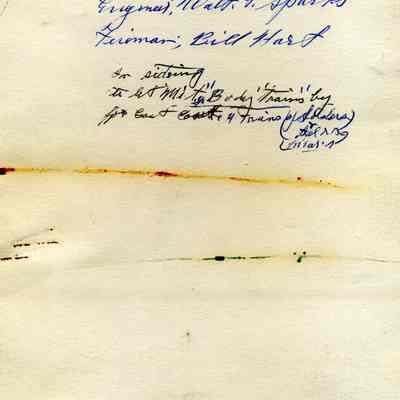 Engineer, Walt. G. Sparks
Fireman; Bill Hart
On siding
to let M's "Body Trains" by
for East Coast 4 trains of Soldiers